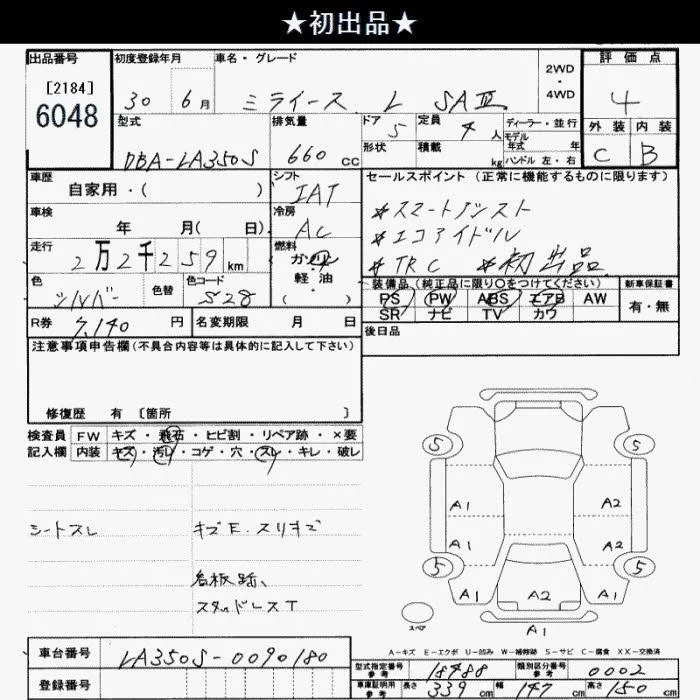 ★初出品★
出品番号 初度登録年月 車名・グレード 2WD・4WD 評価点
[2184]
6048
30 6月 ミライース L SAⅢ 4
型式 排気量 ドア 定員 ディーラー・並行 外装 内装
5 4人 モデル年式 年
形状 積載 kg ハンドル 左・右
DBA-LA350S 660cc C B
車歴 シフト セールスポイント (正常に機能するものに限ります)
自家用・( ) IAT
*スマートアシスト
車検 冷房
年 月( 日) AC
*エコアイドル
走行 燃料
2万2千259km ガソリン
*TRC *初出品
色 色替 色コード 軽油
シルバー S28 ( )
装備品(純正品に限り○をつけてください) 新車保証書
PS PW ABS エアB AW 有・無
SR ナビ TV カワ
R券 7,140円 名変期限 月 日 後日品
注意事項申告欄(不具合内容等は具体的に記入して下さい)
修復歴 有 [箇所 ]
検査員 FW キズ・飛石・ヒビ割・リペア跡・×要
記入欄 内装 キズ・汚レ・コゲ・穴・スレ・キレ・破レ
シートスレ キズE.スリキズ
看板跡、
スタッドレスT
5 5
A1 A2
A1 A2
5 5
A1 A2 A1
スペア A1
A-キズ E-エクボ U-凹み W-補修跡 S-サビ C-腐食 XX-交換済
車台番号 LA350S-0090180
登録番号
型式指定番号 参考 18488 類別区分番号 参考 0002
車庫証明用 参考 長さ 339cm 幅 147cm 高さ 150cm